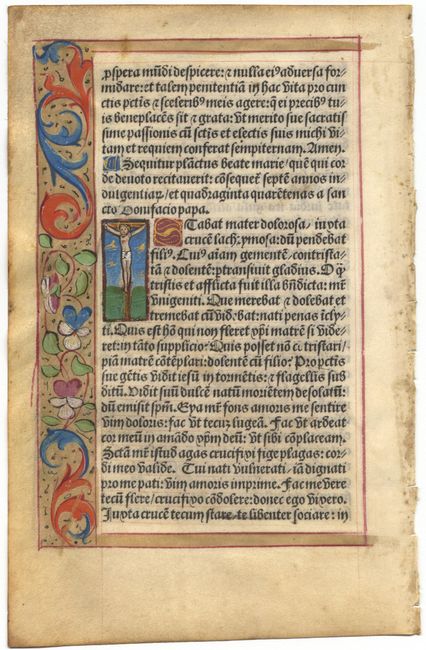 ꝓspera mūdi despicere: ⁊ nulla eiꝰ aduersa for-
midare: et talem penitentiā in hac vita pro cun
ctis pctīs ⁊ sceleribꝰ meis agere: ꝙ ei precibꝰ tu-
is beneplacēs sit ⁊ grata: vt merito sue sacratis
sime passionis cū sctīs et electis suis michi vi-
tam et requiem conferat sempiternam. Amen.
Sequitur plāctus beate marie/ quē qui cor
de deuoto recitauerit: cōsequet᷑ septē annos in-
dulgentiaꝝ/ et quadraginta quarētenas a san
cto Bonifacio papa.
Stabat mater dolorosa/ iuxta
crucē lachrymosa: dū pendebat
filiꝰ. Cuiꝰ aīam gementē/ contrista-
tā ⁊ dolentē: ꝑtransiuit gladius. O ꝙ̄
tristis et afflicta fuit illa bn̄dicta: mr̄
vnigeniti. Que merebat ⁊ dolebat et
tremebat cū vid᷑bat: nati penas icly-
ti. Quis est hō qui non fleret xp̄i matrē si vide-
ret: in tāto supplicio. Quis posset nō cōtristari/
piā matrē cōtēplari: dolentē cū filio. Pro pctīs
sue gētis vidit iesū in tormētis: ⁊ flagellis sub
ditū. Vidit suū dulcē natū moriētem desolatū:
dū emisit sp̄m. Eya mr̄ fons amoris me sentire
vim doloris: fac vt tecū lugeā. Fac vt ardeat
cor meū in amādo xp̄m deū: vt sibi cōplaceam.
Sctā mr̄ istud agas crucifixi fige plagas: cor-
di meo valide. Tui nati vulnerati/ iā dignati
pro me pati: vim amoris imprime. Fac me vere
tecū flere/ crucifixo cōdolere: donec ego vixero.
Iuxta crucē tecum stare/ te libenter sociare: in